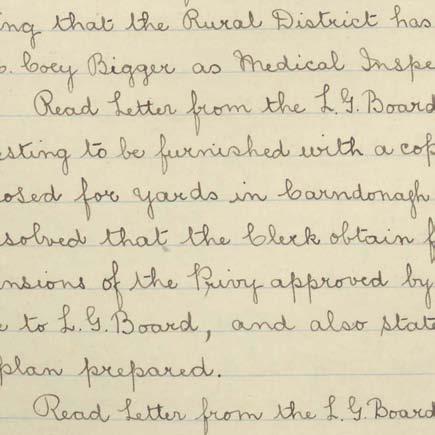 ing that the Rural District has
. Coey Bigger as Medical Inspe
Read Letter from the L.G. Board
esting to be furnished with a cop
osed for yards in Carndonagh
solved that the Clerk obtain f
nsions of the Privy approved by
e to L.G. Board, and also state
plan prepared.
Read Letter from the L.G. Board